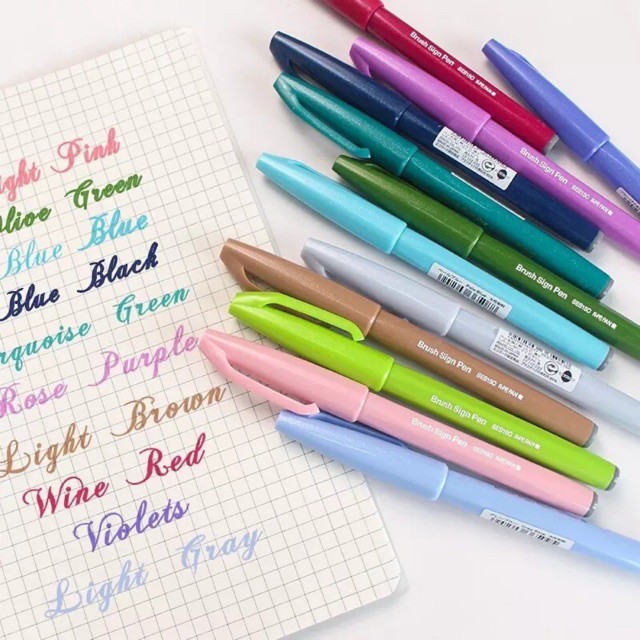 ight Pink
live Green
Blue Blue
Blue Black
urquoise Green
Rose Purple
Light Brown
Wine Red
Violets
Light Gray
Brush Sign Pen
Brush Sign Pen
Brush Sign Pen
Brush Sign Pen
Brush Sign Pen
Brush Sign Pen